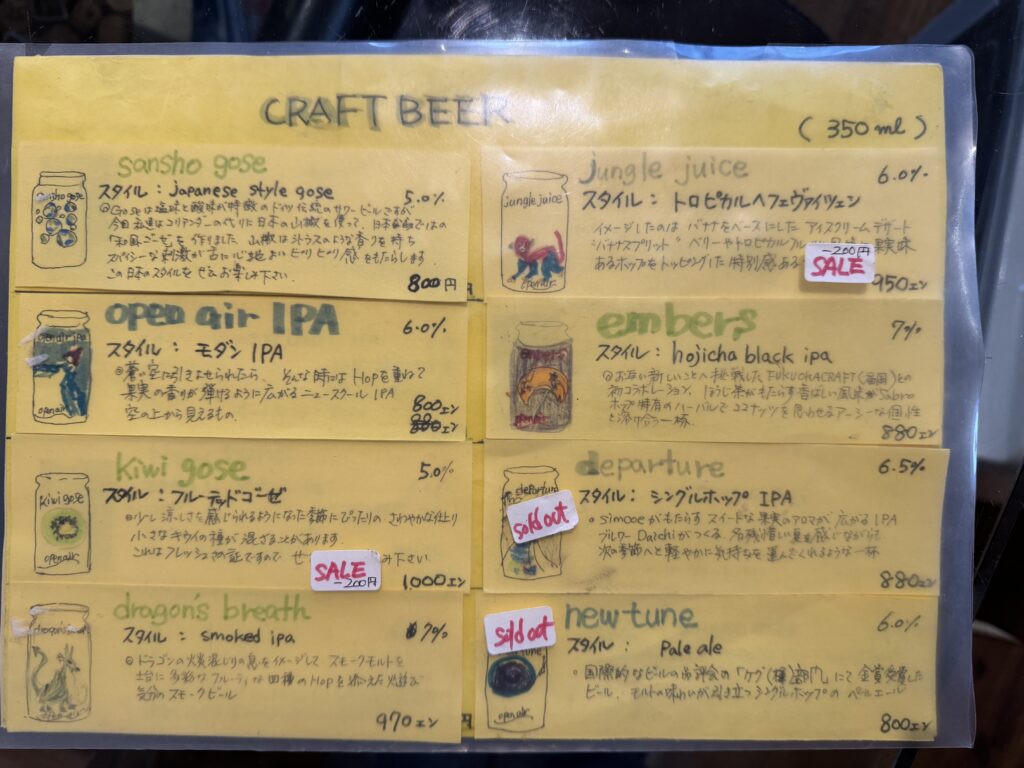 CRAFT BEER
(350ml)
sansho gose
スタイル：japanese style gose
5.0%
◎Goseは塩味と酸味が特徴のドイツ伝統のサワービールですが
今回私達はコリアンダーの代りに日本の山椒を使って、日本ならではの
"和風ゴーゼ"を作りました 山椒はシトラスのような香りを持ち
スパイシーな刺激が舌に心地よいピリピリ感をもたらします
この日本のスタイルをぜひお楽しみ下さい
800円
sansho gose
open air IPA
6.0%
スタイル：モダン IPA
◎蒼い空に引きよせられたら、そんな時はHopを重ねて
果実の香りが弾けるように広がるニュースクール IPA
空の上から見えるもの.
800エン
open air
kiwi gose
5.0%
スタイル：フルーテッドゴーゼ
◎少し涼しさを感じられるようになった季節にぴったりの さわやかな仕上り
小さなキウイの種が混ざることがあります.
これはフレッシュさの証ですので、ぜ
み下さい.
SALE
-200円
1000エン
kiwi gose
open air
dragon's breath
7%
スタイル：smoked ipa
◎ドラゴンの煙混じりの息をイメージして スモークモルトを
土台に多彩なフルーティな四種のHopを添えた
気分のスモークビール
970エン
dragon's
jungle juice
6.0%
スタイル：トロピカルヘフェヴァイツェン
イメージしたのは バナナをベースにした アイスクリームデザート
"バナナスプリット" ベリーやトロピカルフルー
果実味
あるホップをトッピングした 特別感ある
-200円
SALE
950エン
jungle juice
open air
embers
7%
スタイル：hojicha black ipa
◎お互い新しいことへ挑戦した FUKUOKACRAFT(福岡)との
初コラボレーション. ほうじ茶がもたらす香ばしい風味がSabro
ホップ特有のハーバルで ココナッツを思わせるアーシーな個性
と溶け合う一杯.
880エン
embers
departure
6.5%
スタイル：シングルホップ IPA
◎simcoeがもたらす スイートな果実のアロマが広がる IPA
ブルワー Daichiがつくる. 名残惜しい夏を感じながら
次の季節へと軽やかに気持ちを運んでくれるような一杯
880エン
departure
sold out
new tune
6.0%
スタイル：Pale ale
◦国際的なビールの品評会の「ケグ(樽)部門」にて 金賞受賞した
ビール. モルトの味わいが引き立つ シングルホップの ペールエール
800エン
sold out
tune
open air